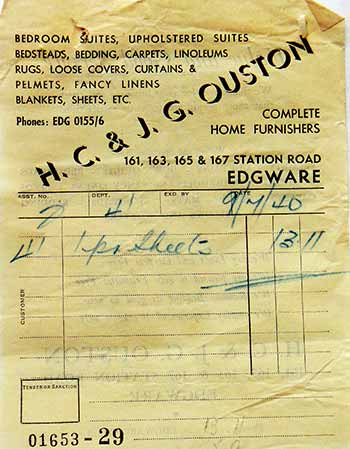 BEDROOM SUITES, UPHOLSTERED SUITES
BEDSTEADS, BEDDING, CARPETS, LINOLEUMS
RUGS, LOOSE COVERS, CURTAINS &
PELMETS, FANCY LINENS
BLANKETS, SHEETS, ETC.
Phones: EDG 0155/6
H. C. & J. G. OUSTON
COMPLETE
HOME FURNISHERS
161, 163, 165 & 167 STATION ROAD
EDGWARE
ASST. NO. DEPT. EXD. BY DATE
41 9/7/40
41 1 pr Sheets 13 11
CUSTOMER
TENDER OR SANCTION
01653-29